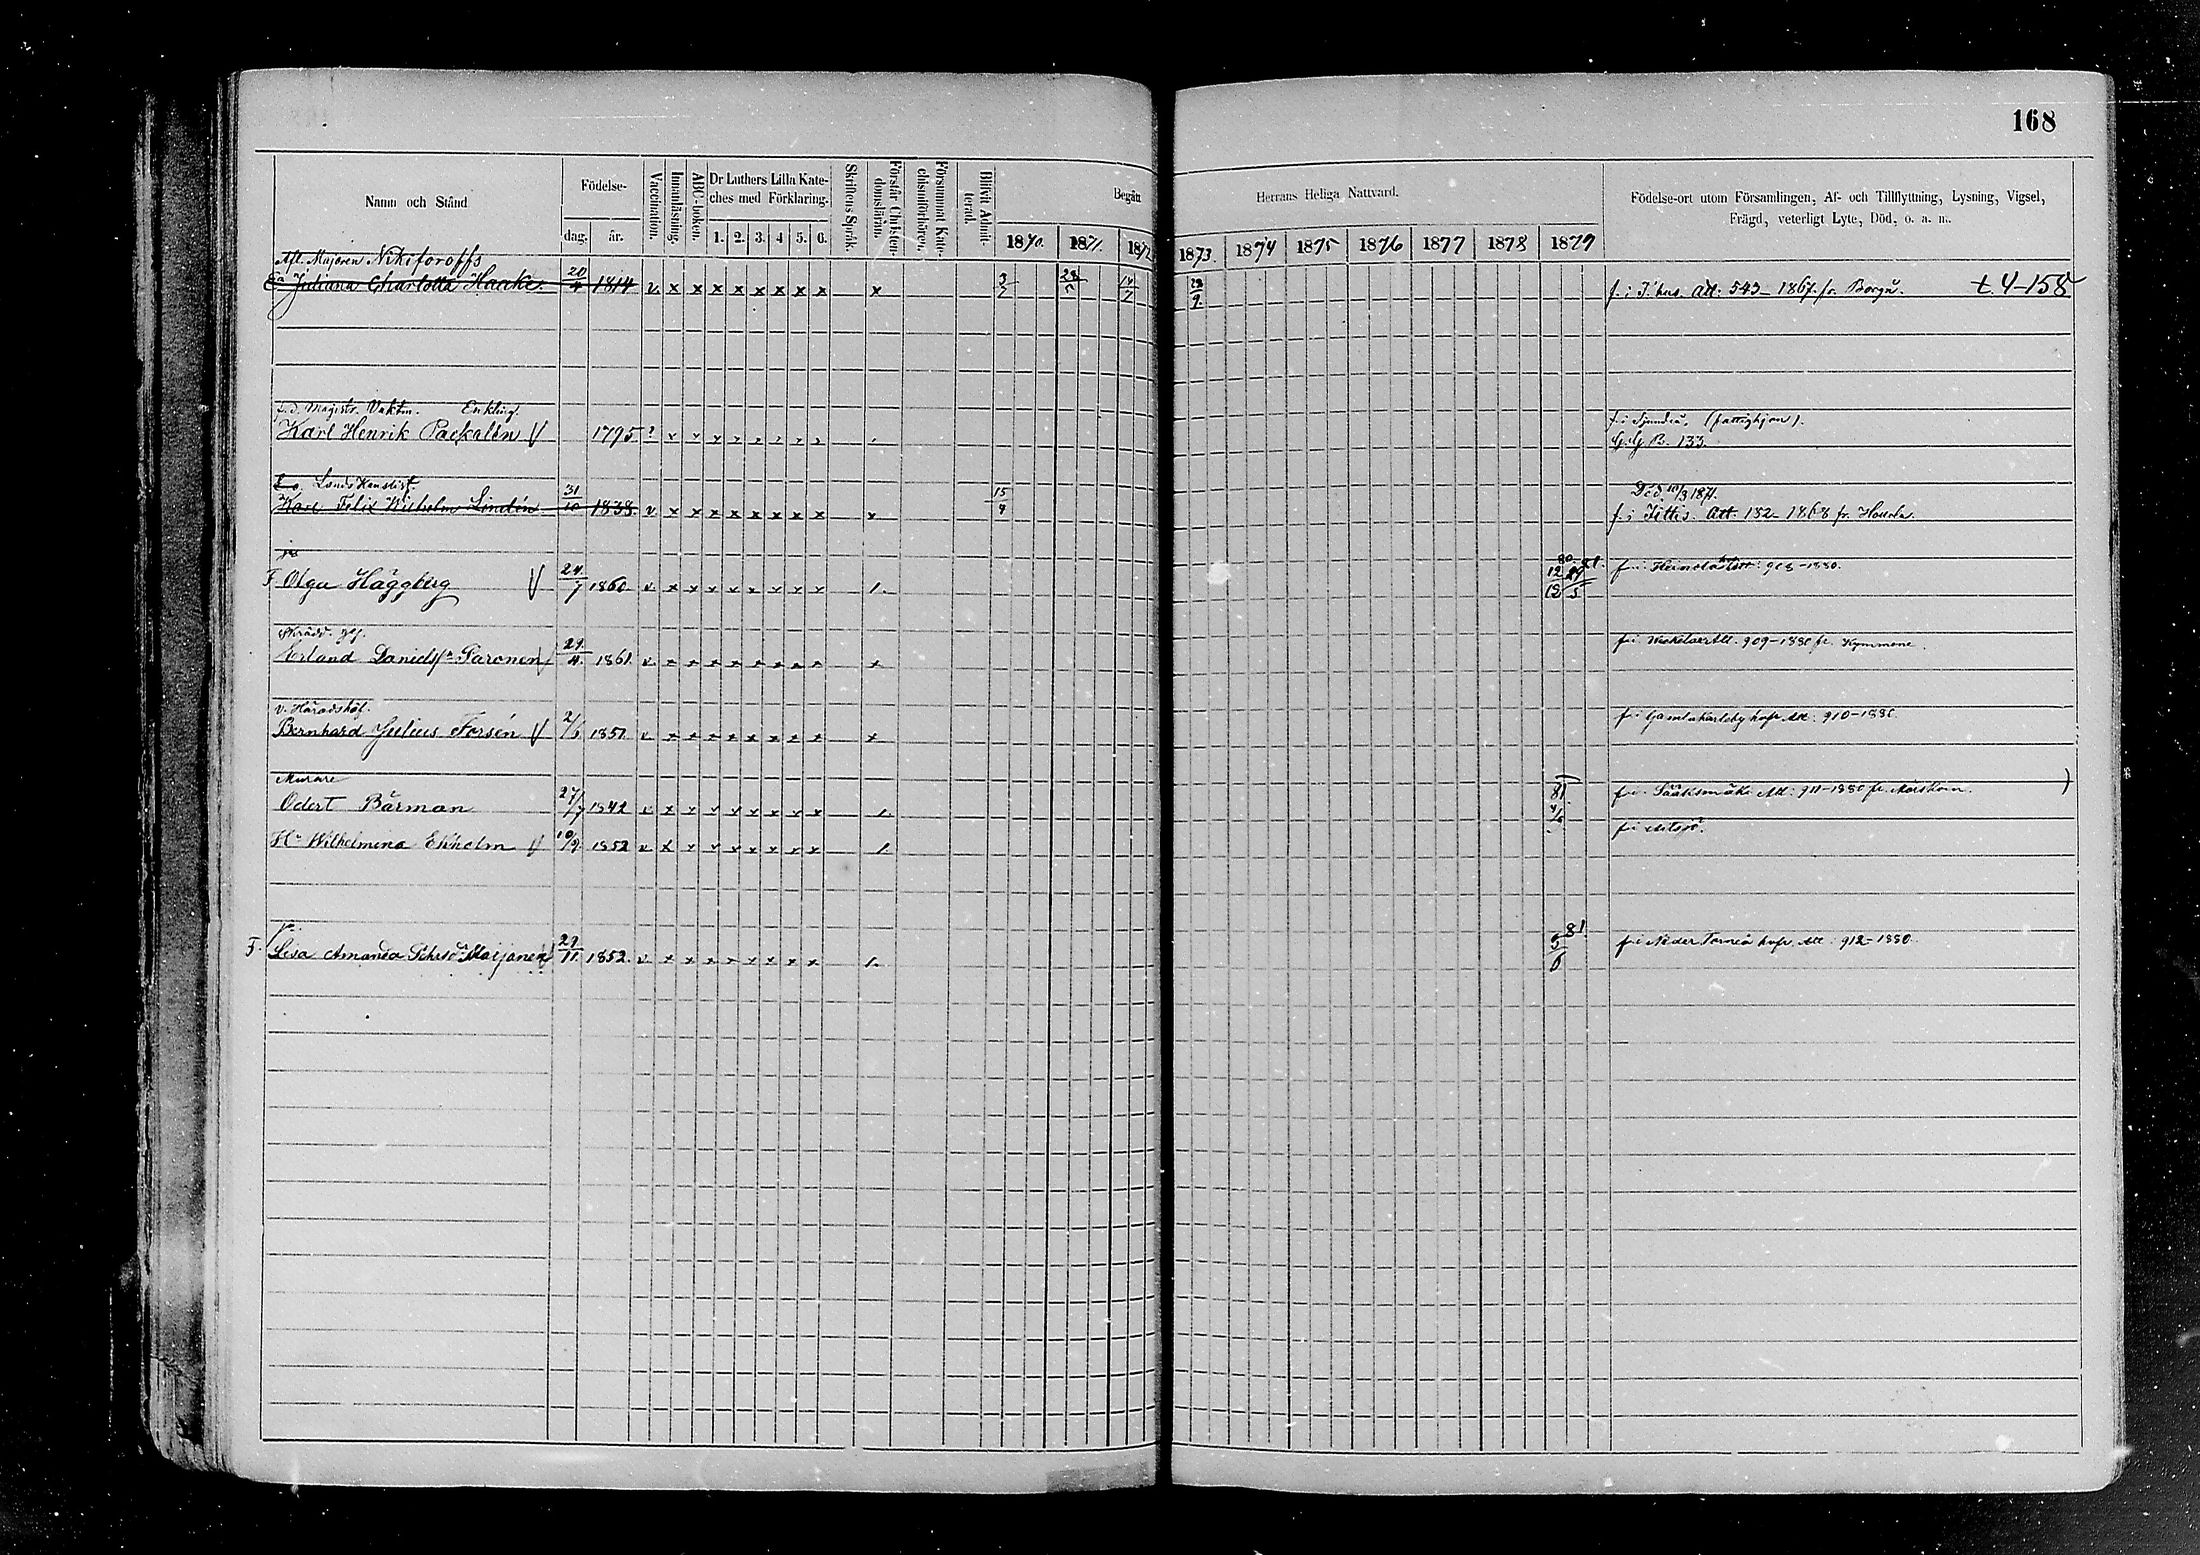 168
Namn och Stånd
Födelse-
dag. år.
Vaccination.
Innanläsning.
ABC-boken.
Dr Luthers Lilla Kate-
ches med Förklaring.
1. 2. 3. 4 5. 6.
Skriftens Språk.
Förstår Christen-
domsläran.
Försummat Kate-
chismiförhören.
Blifvit Admit-
terad.
Begått Herrans Heliga Nattvard.
1870. 1871. 1872 1873. 1874 1875 1876 1877 1878 1879
Födelse-ort utom Församlingen, Af- och Tillflyttning, Lysning, Vigsel,
Frägd, veterligt Lyte, Död, o. a. m.
Afl. Majoren Nikiforoffs
Ea Juliana Charlotta Haacke. 20/4 1814 v x x x x x x x x x 3/7 28 14/7 28/9 f. i T:hus. Att: 543-1867. fr. Borgå. t. 4-158
f. d. Magistr. Vaktm. Enkling.
Karl Henrik Paekalén V 1795 ? f. i Sjundeå, (fattighjon).
133.
Lands Kanslist.
Karl Felix Wilhelm Lindén 31/10 1838. v x x x x x x x x x 15/9 Död 10/3 1871.
f. i Jittis. Att: 182-1868 fr.
F Olga Häggberg V 24/7 1860 v x x x x x x x x 1. 80. 81. 12/12 29/5 f. i Heinola Att: 908-1880.
Skrädd. ges.
Erland Danielsn Paronen V 29/4. 1861. v x x x x x x x x x f. i Att. 909-1880 fr. Kymmene.
v. Häradshöf.
Bernhard Julius Forsén V 2/6 1851. v x x x x x x x x x f. i Gamlakarleby Att: 910-1880.
Murare
Odert Bärman 27/7 1842 v x x x x x x x x 1. 81. f. i Sääksmäki Att: 911-1880 fr. Mörskom. )
Hu Wilhelmina Ekholm V 10/9. 1852 v x x x x x x x x 1. f. i Artsjö.
F. Lisa Amanda Maijanen 29/11. 1852. v x x x x x x x x 1. 81 5/6 f. i Neder Torneå Att: 912-1880.